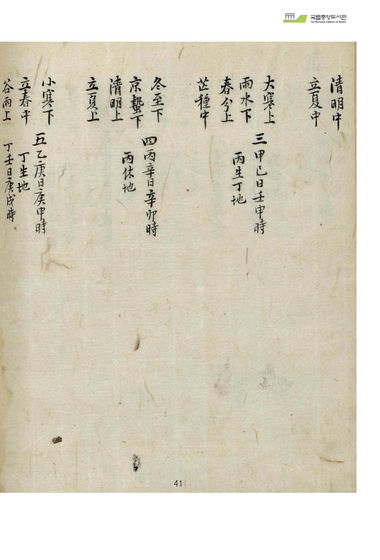 국립중앙도서관
清明中
立夏中
大寒上
雨水下
春分上
芒種中
三甲己日壬申時
丙生丁地
冬至下
京蟄下
清明上
立夏上
四丙辛日辛卯時
丙休地
小寒下
立春中
谷雨上
五乙庚日庚申時
丁生地
丁壬日庚戌時
41